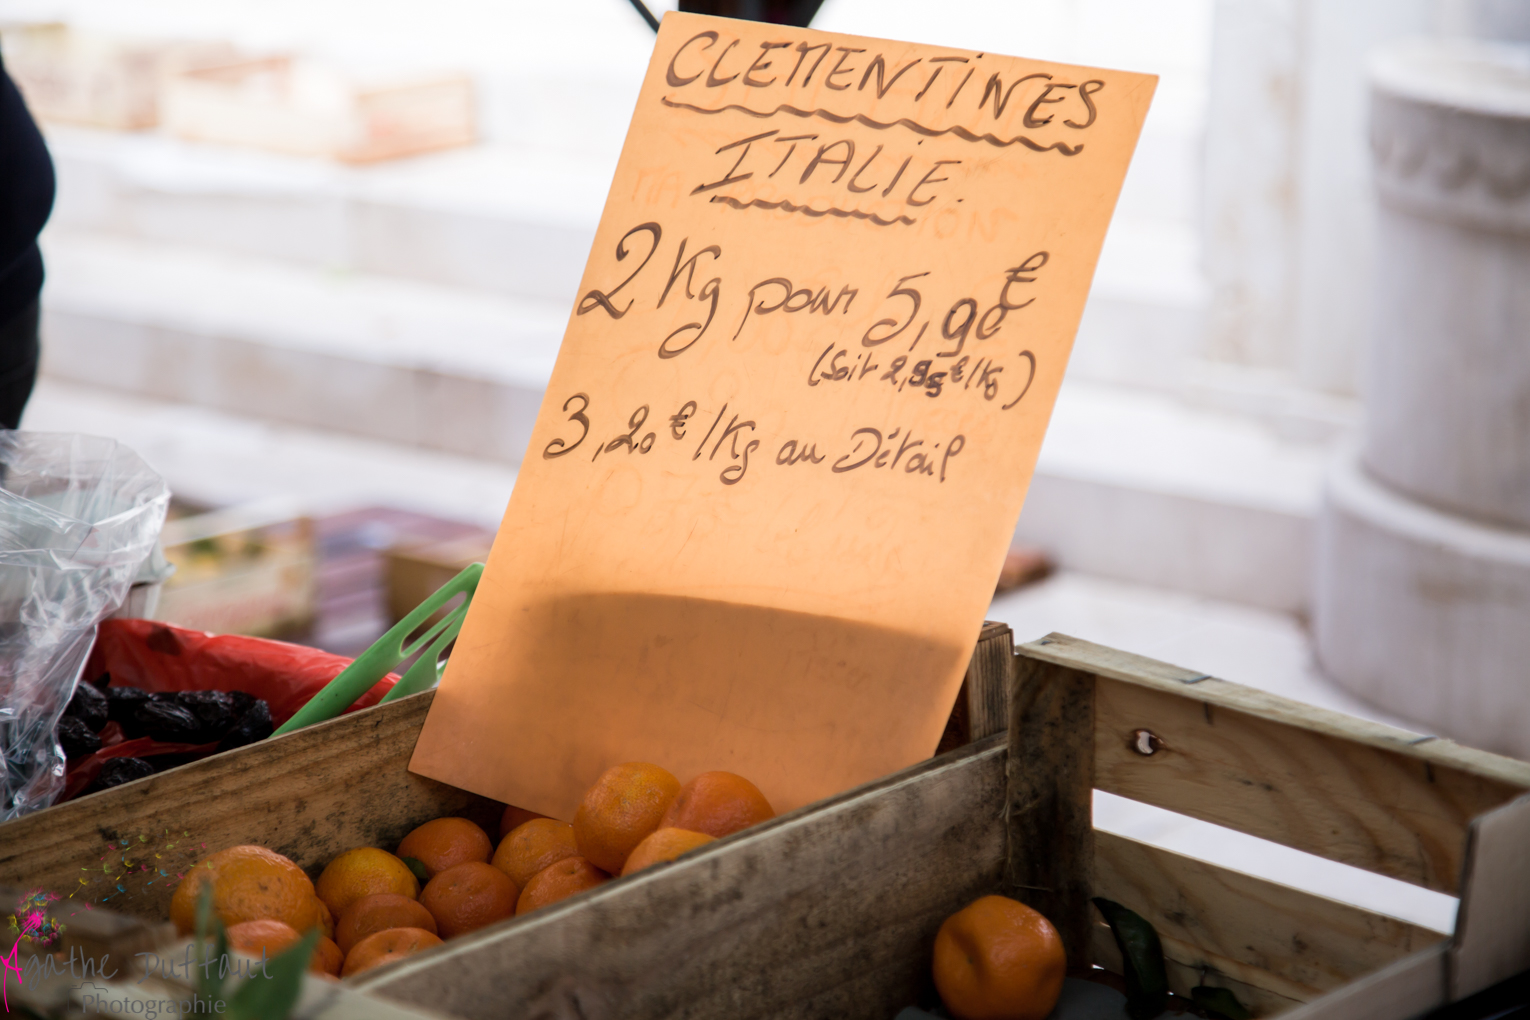 CLEMENTINES
ITALIE.
2 Kg pour 5,90€
(Soit 2,95€/Kg)
3,20€/Kg au Détail
Agathe Duffaut
Photographie